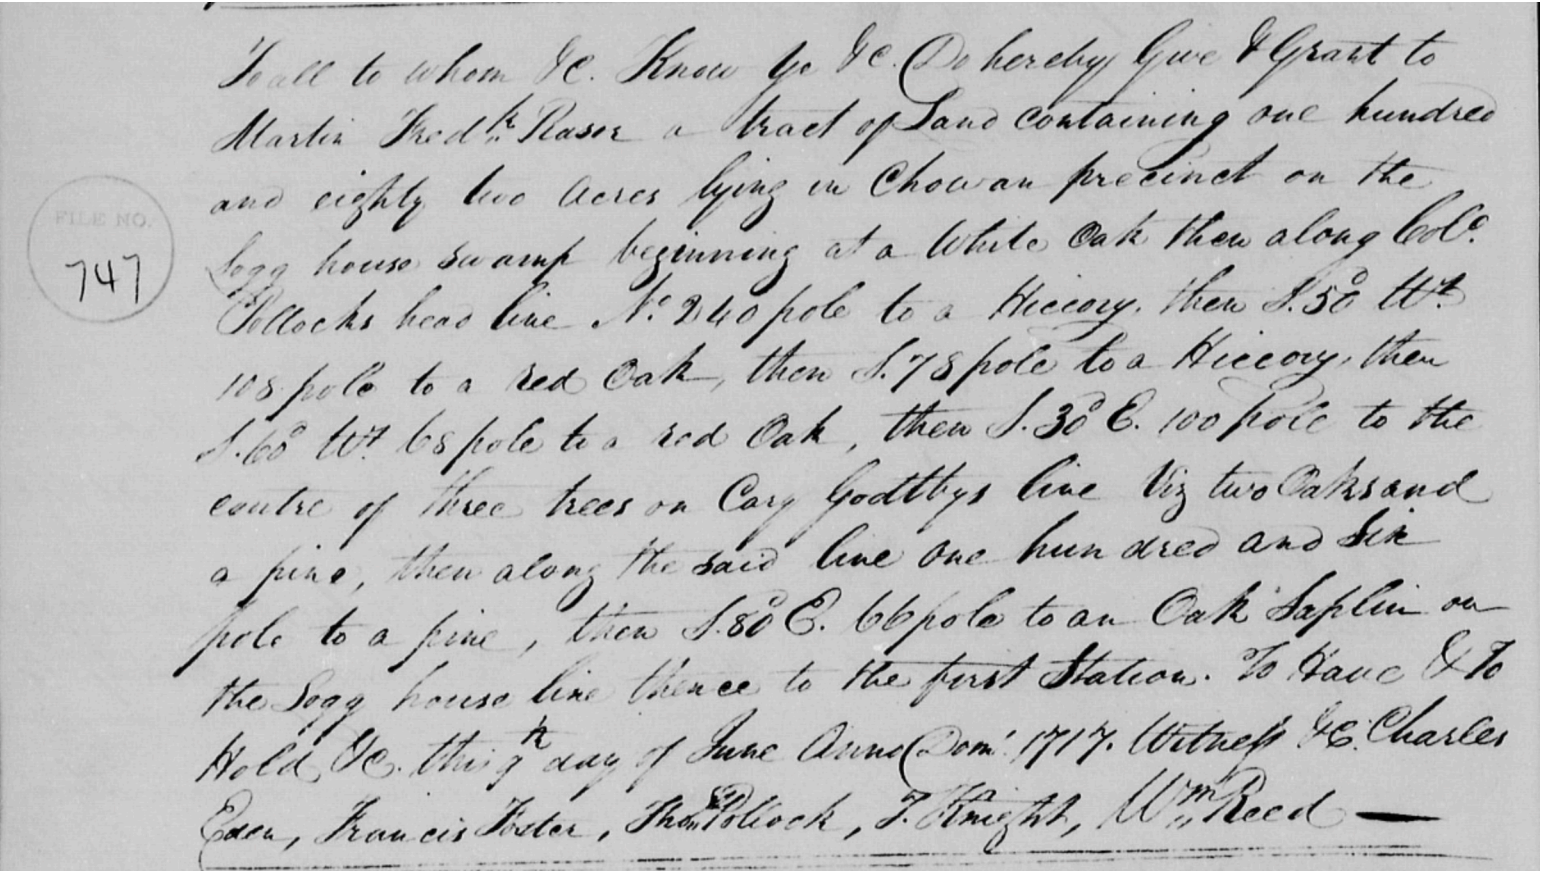 To all to whom &C. Know Ye &C. Do hereby Give & Grant to
Martin Fredk. Rasor a tract of Land containing one hundred
and eighty two acres lying in Chowan precinct on the
FILE NO.
747
Logg house swamp beginning at a White Oak then along Colo.
Pollocks head line No. 240 pole to a Hiccory, then S.50 Wt.
108 pole to a red Oak, then S.78 pole to a Hiccory, then
S.60 Wt. 68 pole to a red Oak, then S.30 E. 100 pole to the
centre of three trees on Cary Godtbys line Viz two Oaks and
a pine, then along the said line one hundred and Six
pole to a pine, then S.80 E. 66 pole to an Oak Saplin on
the Logg house line thence to the first Station. To Have & To
Hold &C. this 9th day of June Anno Dom: 1717. Witness &C. Charles
Eden, Francis Foster, Thos. Pollock, T. Knight, Wm. Reed